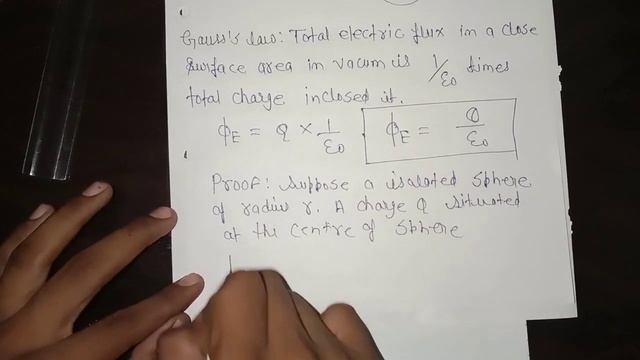 Gauss's law: Total electric flux in a close
surface area in vacum is 1/ε0 times
total charge inclosed it.
ϕE = Q × 1/ε0 ϕE = Q/ε0
Proof: Suppose a isolated sphere
of radius r. A charge Q situated
at the centre of sphere